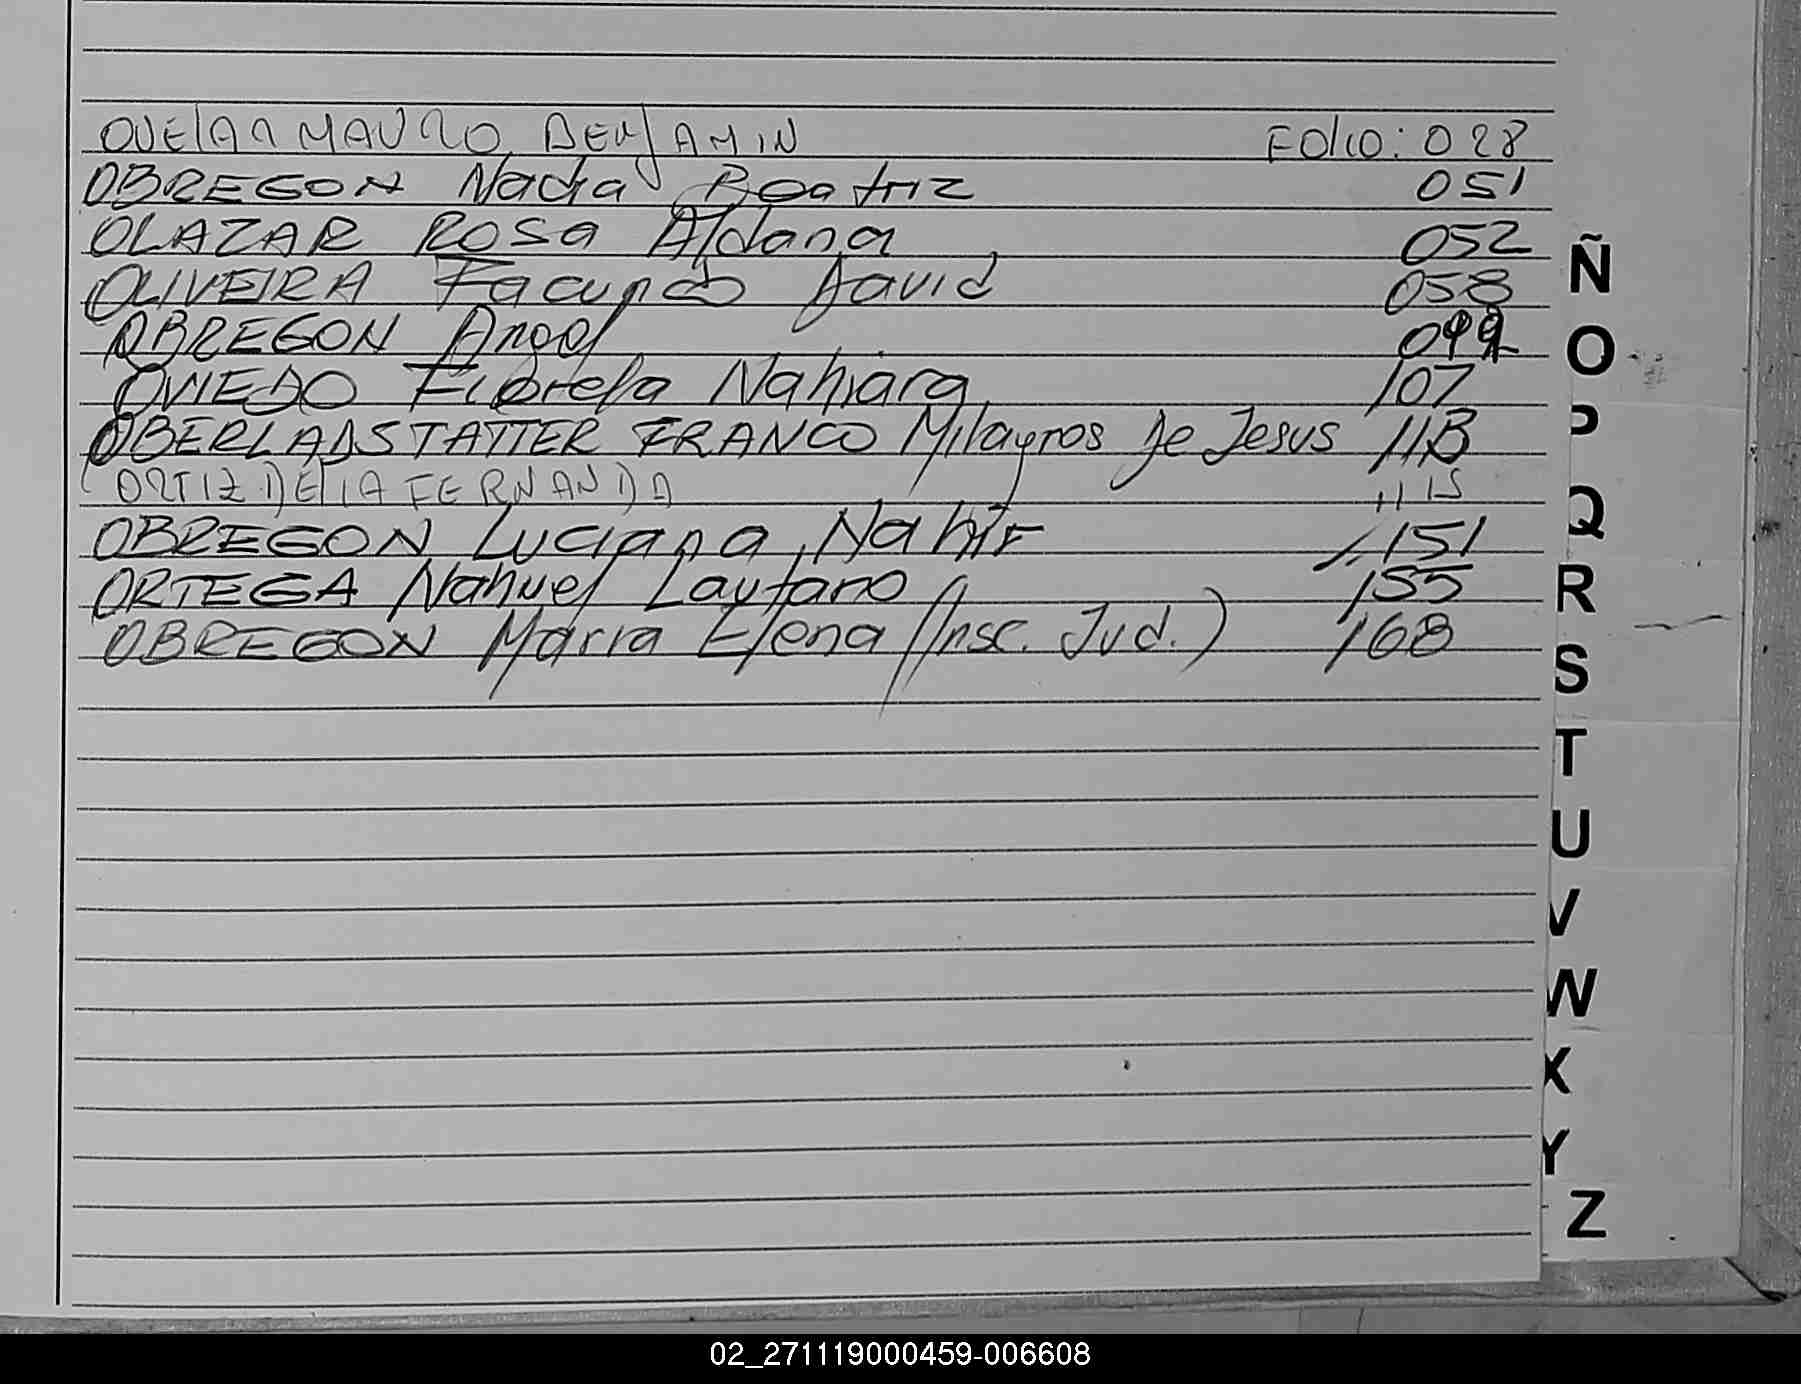 OVELAR MAURO BENJAMIN FOLIO: 028
OBREGON Nadia Beatriz 051
OLAZAR ROSA Aldana 052
OLIVEIRA Facundo David 058
OBREGON Angel
OVIEDO Fiorela Nahiara 107
OBERLADSTATTER FRANCO Milagros de Jesus 118
ORTIZ DELIA FERNANDA
OBREGON Luciana Nahir 151
ORTEGA Nahuel Lautaro 155
OBREGON Maria Elena (Insc. Jud.) 168
Ñ
O
P
Q
R
S
T
U
V
W
X
Y
Z
02_271119000459-006608